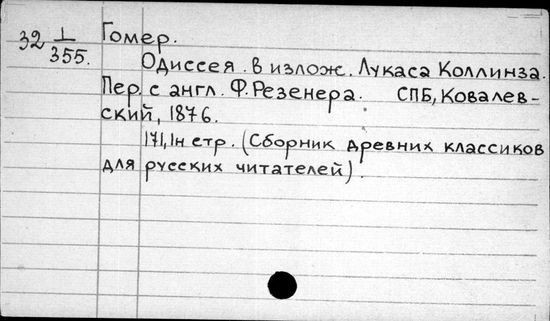 32 1/355. Гомер.
Одиссея. в излож. Лукаса Коллинза.
Пер. с англ. Ф. Резенера. СПБ, Ковалев-
ский, 1876.
171, 1н стр. (Сборник древних классиков
для русских читателей).